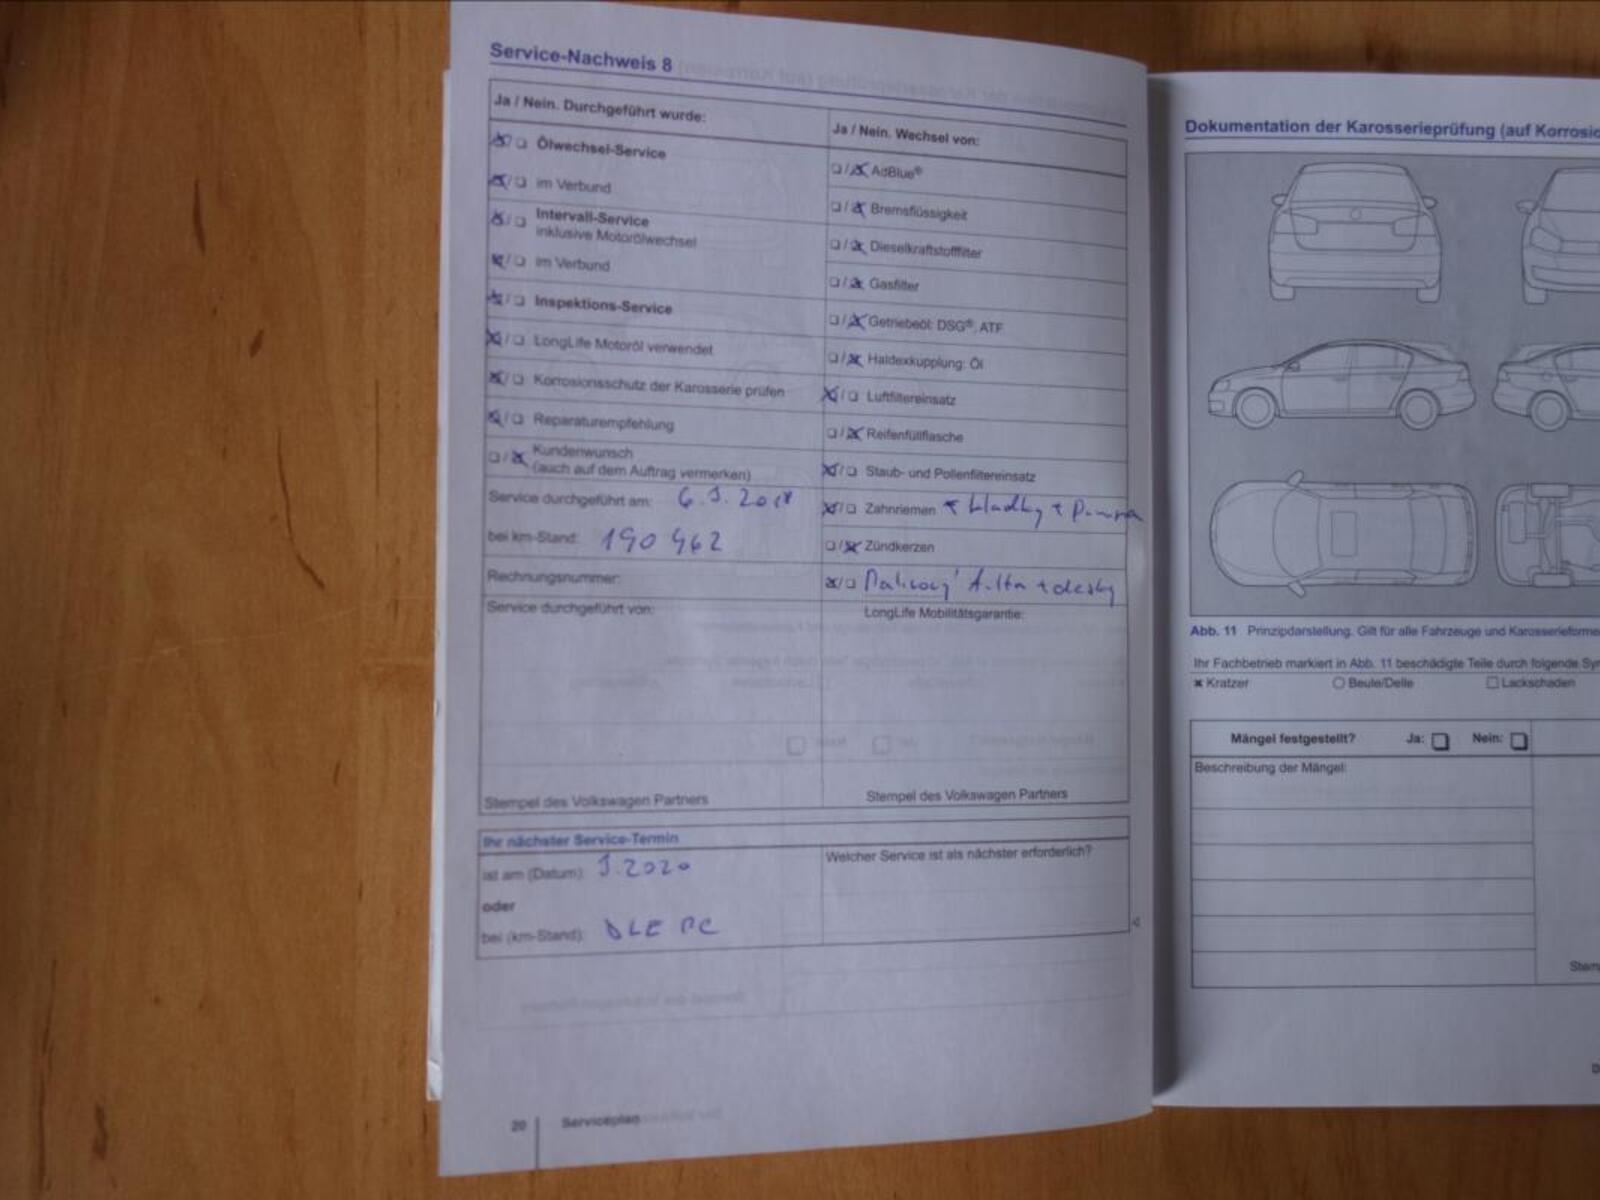 Service-Nachweis 8
Ja / Nein. Durchgeführt wurde:
Ölwechsel-Service
im Verbund
Intervall-Service
inklusive Motorölwechsel
im Verbund
Inspektions-Service
LongLife Motoröl verwendet
Korrosionsschutz der Karosserie prüfen
Reparaturempfehlung
Kundenwunsch
(auch auf dem Auftrag vermerken)
Service durchgeführt am:
bei km-Stand: 190 462
Rechnungsnummer:
Service durchgeführt von:
Stempel des Volkswagen Partners
Ja / Nein. Wechsel von:
AdBlue®
Bremsflüssigkeit
Dieselkraftstofffilter
Gasfilter
Getriebeöl: DSG®, ATF
Haldexkupplung: Öl
Luftfiltereinsatz
Reifenfüllflasche
Staub- und Pollenfiltereinsatz
Zahnriemen + kladky +
Zündkerzen
LongLife Mobilitätsgarantie:
Stempel des Volkswagen Partners
Ihr nächster Service-Termin
ist am (Datum):
oder
bei (km-Stand): DLE PC
Welcher Service ist als nächster erforderlich?
20 Serviceplan
Dokumentation der Karosserieprüfung (auf Korrosio
Abb. 11 Prinzipdarstellung. Gilt für alle Fahrzeuge und Karosserieforme
Ihr Fachbetrieb markiert in Abb. 11 beschädigte Teile durch folgende Sy
Kratzer Beule/Delle Lackschaden
Mängel festgestellt? Ja: Nein:
Beschreibung der Mängel:
Stem
D